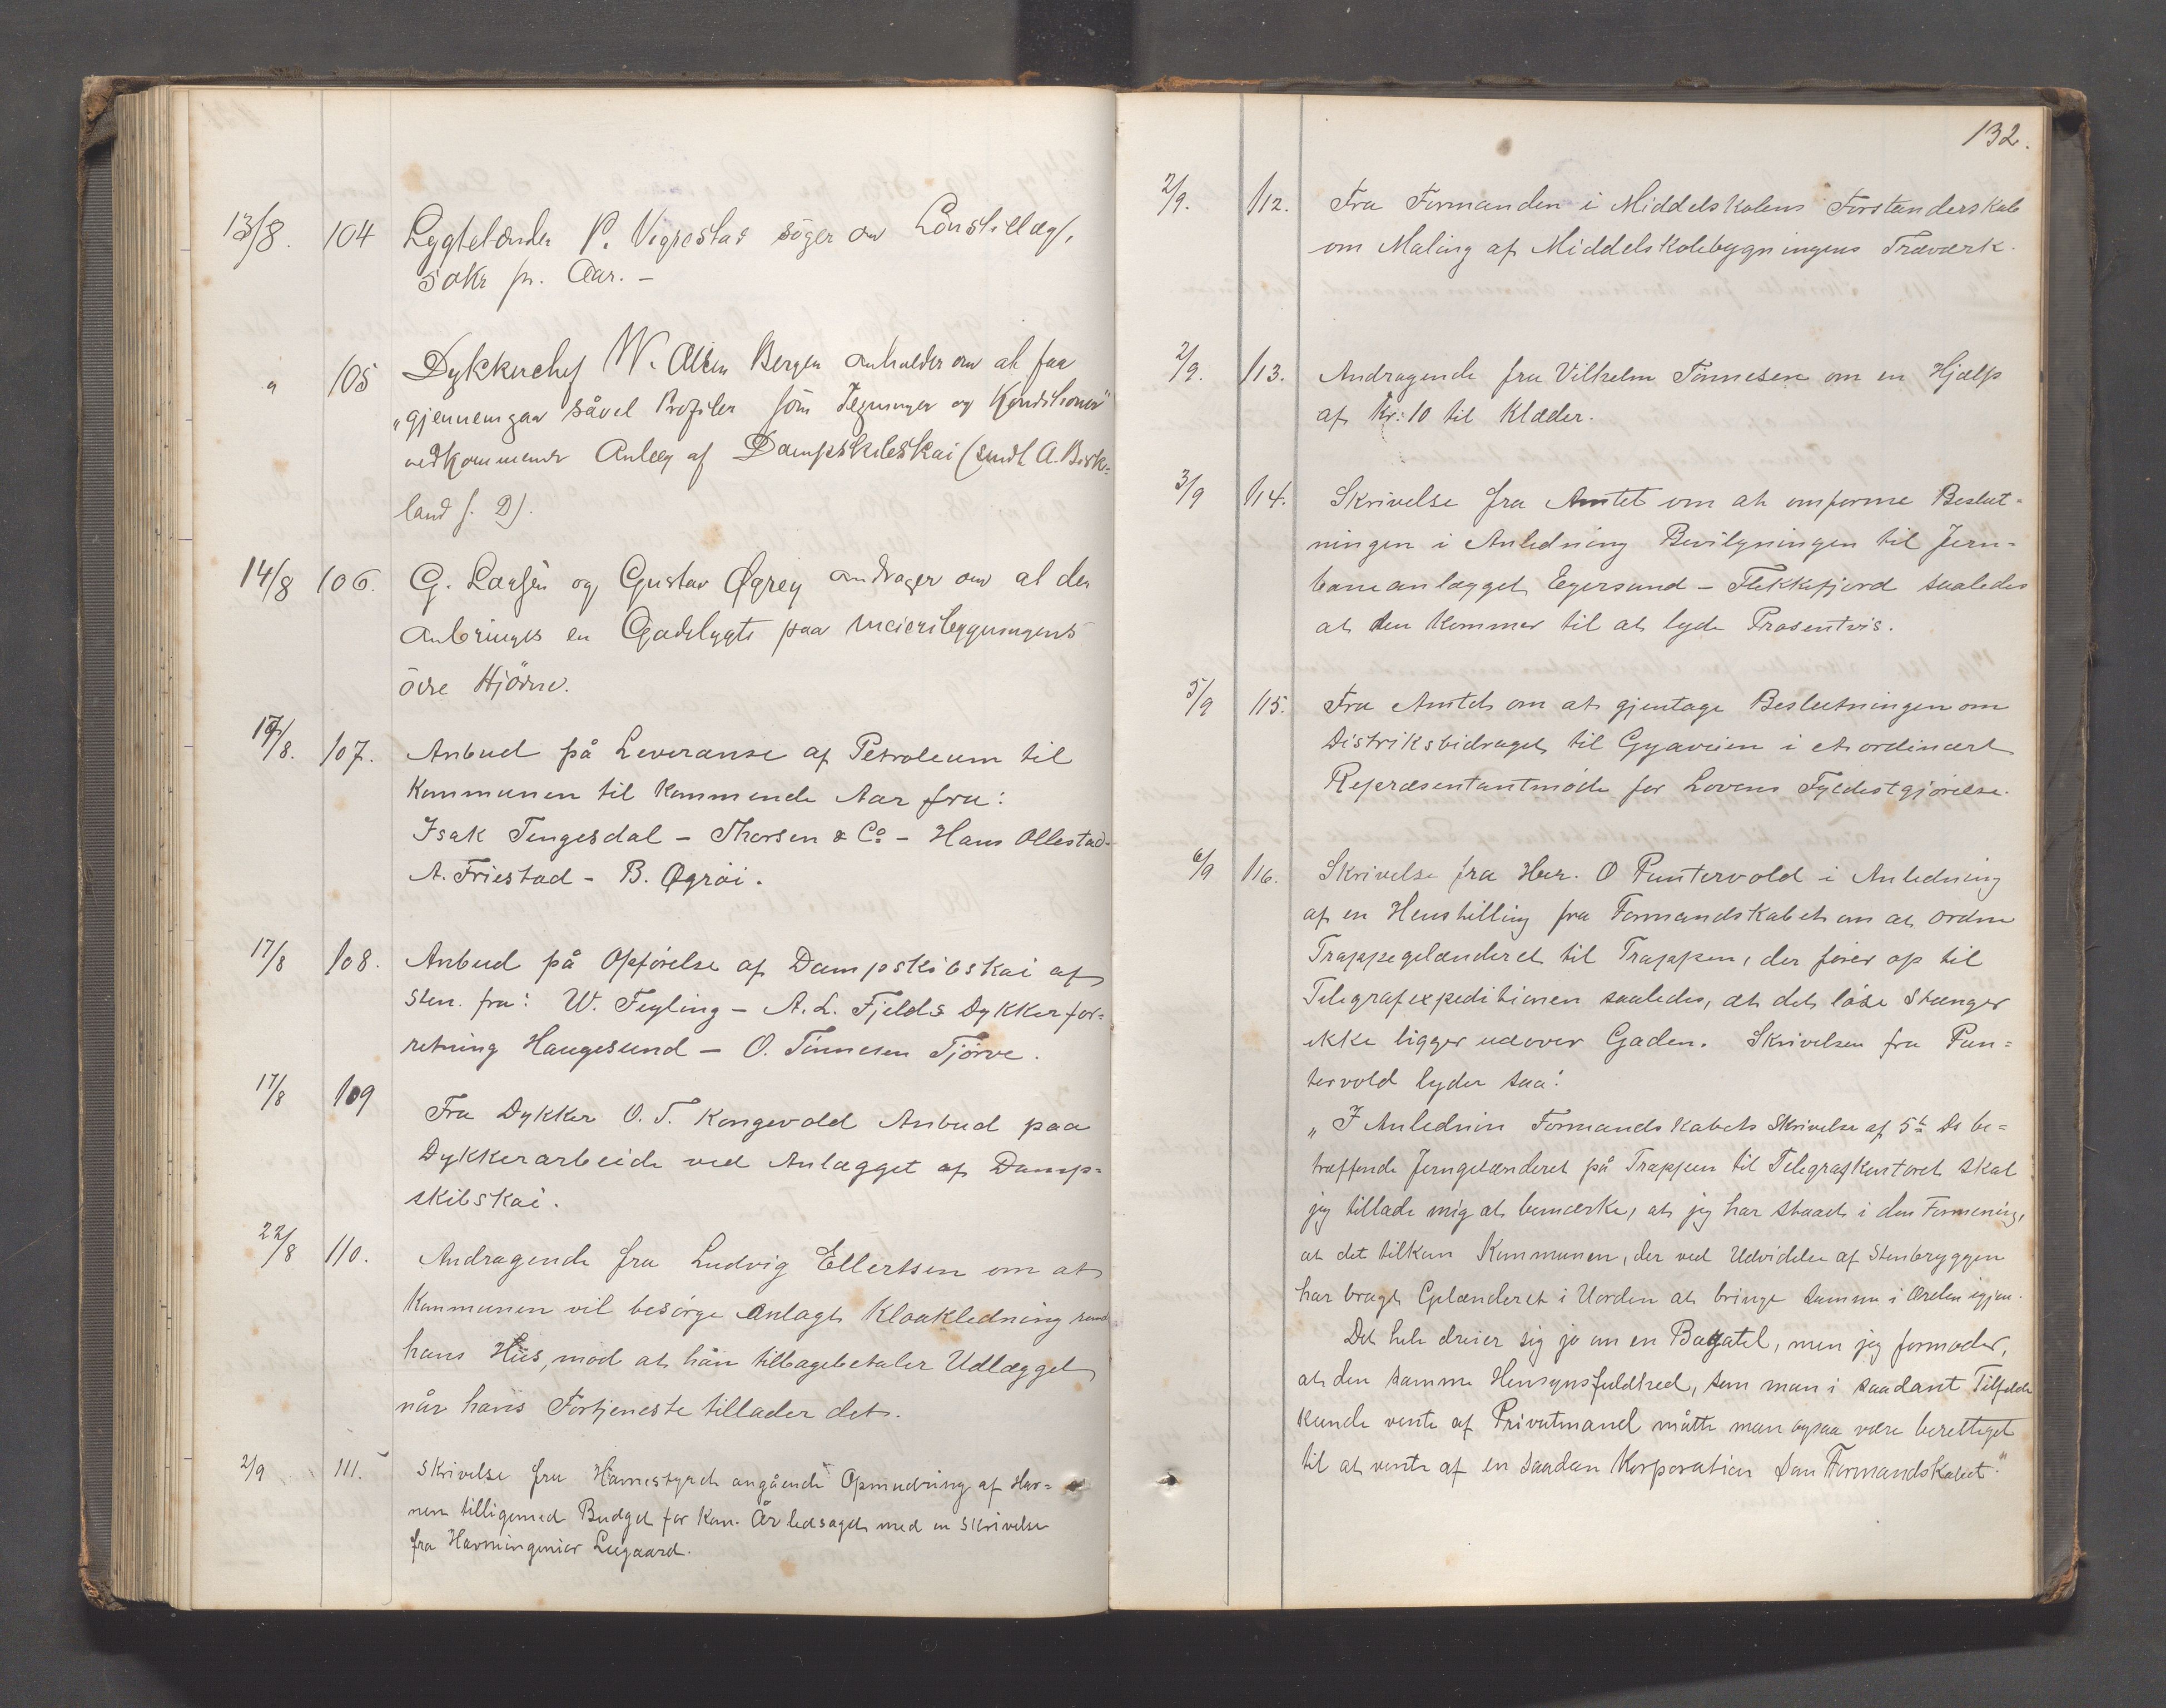 13/8. 104 Lygtetænder P. Vigrestad söger om Lönstillæg,
50 Kr pr. Aar. –
" 105 Dykkerchef W. Olsen Bergen anholder om at faa
„gjennemgaa såvel Profiler som Tegninger og Konditioner"
vedkommende Anlæg af Dampskibskai (sendt A. Birk=
land s. D).
14/8 106. G. Larsen og Gustav Øgrey andrager om at der
anbringes en Gadelygte paa Meieribygningens
övre Hjörne.
17/8. 107. Anbud på Leveranse af Petroleum til
Kommunen til kommende Aar fra:
Isak Tengesdal – Thorsen & Co – Hans Ollestad–
A. Friestad – B. Øgräi.
17/8 108. Anbud på Opförelse af Dampskibskai af
Sten fra: W. Feyling – A. L. Fjelds Dykkerfor=
retning Haugesund – O. Tönnesen Tjörve.
17/8 109 Fra Dykker O. T. Kongevold Anbud paa
Dykkerarbeide ved Anlægget af Damp=
skibskai.
22/8 110. Andragende fra Ludvig Ellertsen om at
Kommunen vil besörge anlagt Kloakledning
hans Hus, mod at han tilbagebetaler Udlægget
når hans Fortjeneste tillader det.
2/9 111. Skrivelse fra Havnestyret angående Opmudring af Hav=
nen tilligemed Budget for Kom. År ledsaget med en Skrivelse
fra Havneingeniør Leegaard.
132.
2/9. 112. Fra Formanden i Middelskolens Forstanderskab
om Maling af Middelskolebygningens Træværk.
2/9. 113. Andragende fra Vilhelm Tönnesen om en Hjælp
af Kr: 10 til Klæder.
3/9 114. Skrivelse fra Amtet om at omforme Beslut=
ningen i Anledning Bevilgningen til Jern=
baneanlægget Egersund – Flekkefjord saaledes
at den kommer til at lyde Prosentvis.
5/9 115. Fra Amtet om at gjentage Beslutningen om
Distriksbidraget til Gyaveien i et ordinært
Repræsentantmöde for Lovens Fyldestgjörelse.
6/9 116. Skrivelse fra Herr. O Puntervold i Anledning
af en Henstilling fra Formandskabet om at ordne
Trappegelænderet til Trappen, der förer op til
Telegrafexpeditionen saaledes, at det löse Stænger
ikke ligger udover Gaden. Skrivelsen fra Pun=
tervold lyder saa:
„I Anlednin Formandskabets Skrivelse af 5te Ds be=
træffende Jerngelænderet på Trappen til Telegrafkontoret skal
jeg tillade mig at bemærke, at jeg har staaet i den Formening,
at det tilkom Kommunen, der ved Udvidelse af Stenbryggen
har bragt Gelænderet i Uorden at bringe samme i Orden igjen.
Det hele dreier sig jo om en Bagatel, men jeg formoder,
at den samme Hensynsfuldhed, som man i saadant Tilfælde
kunde vente af Privatmand måtte man ogsaa være berettiget
til at vente af en saadan Korporation som Formandskabet."